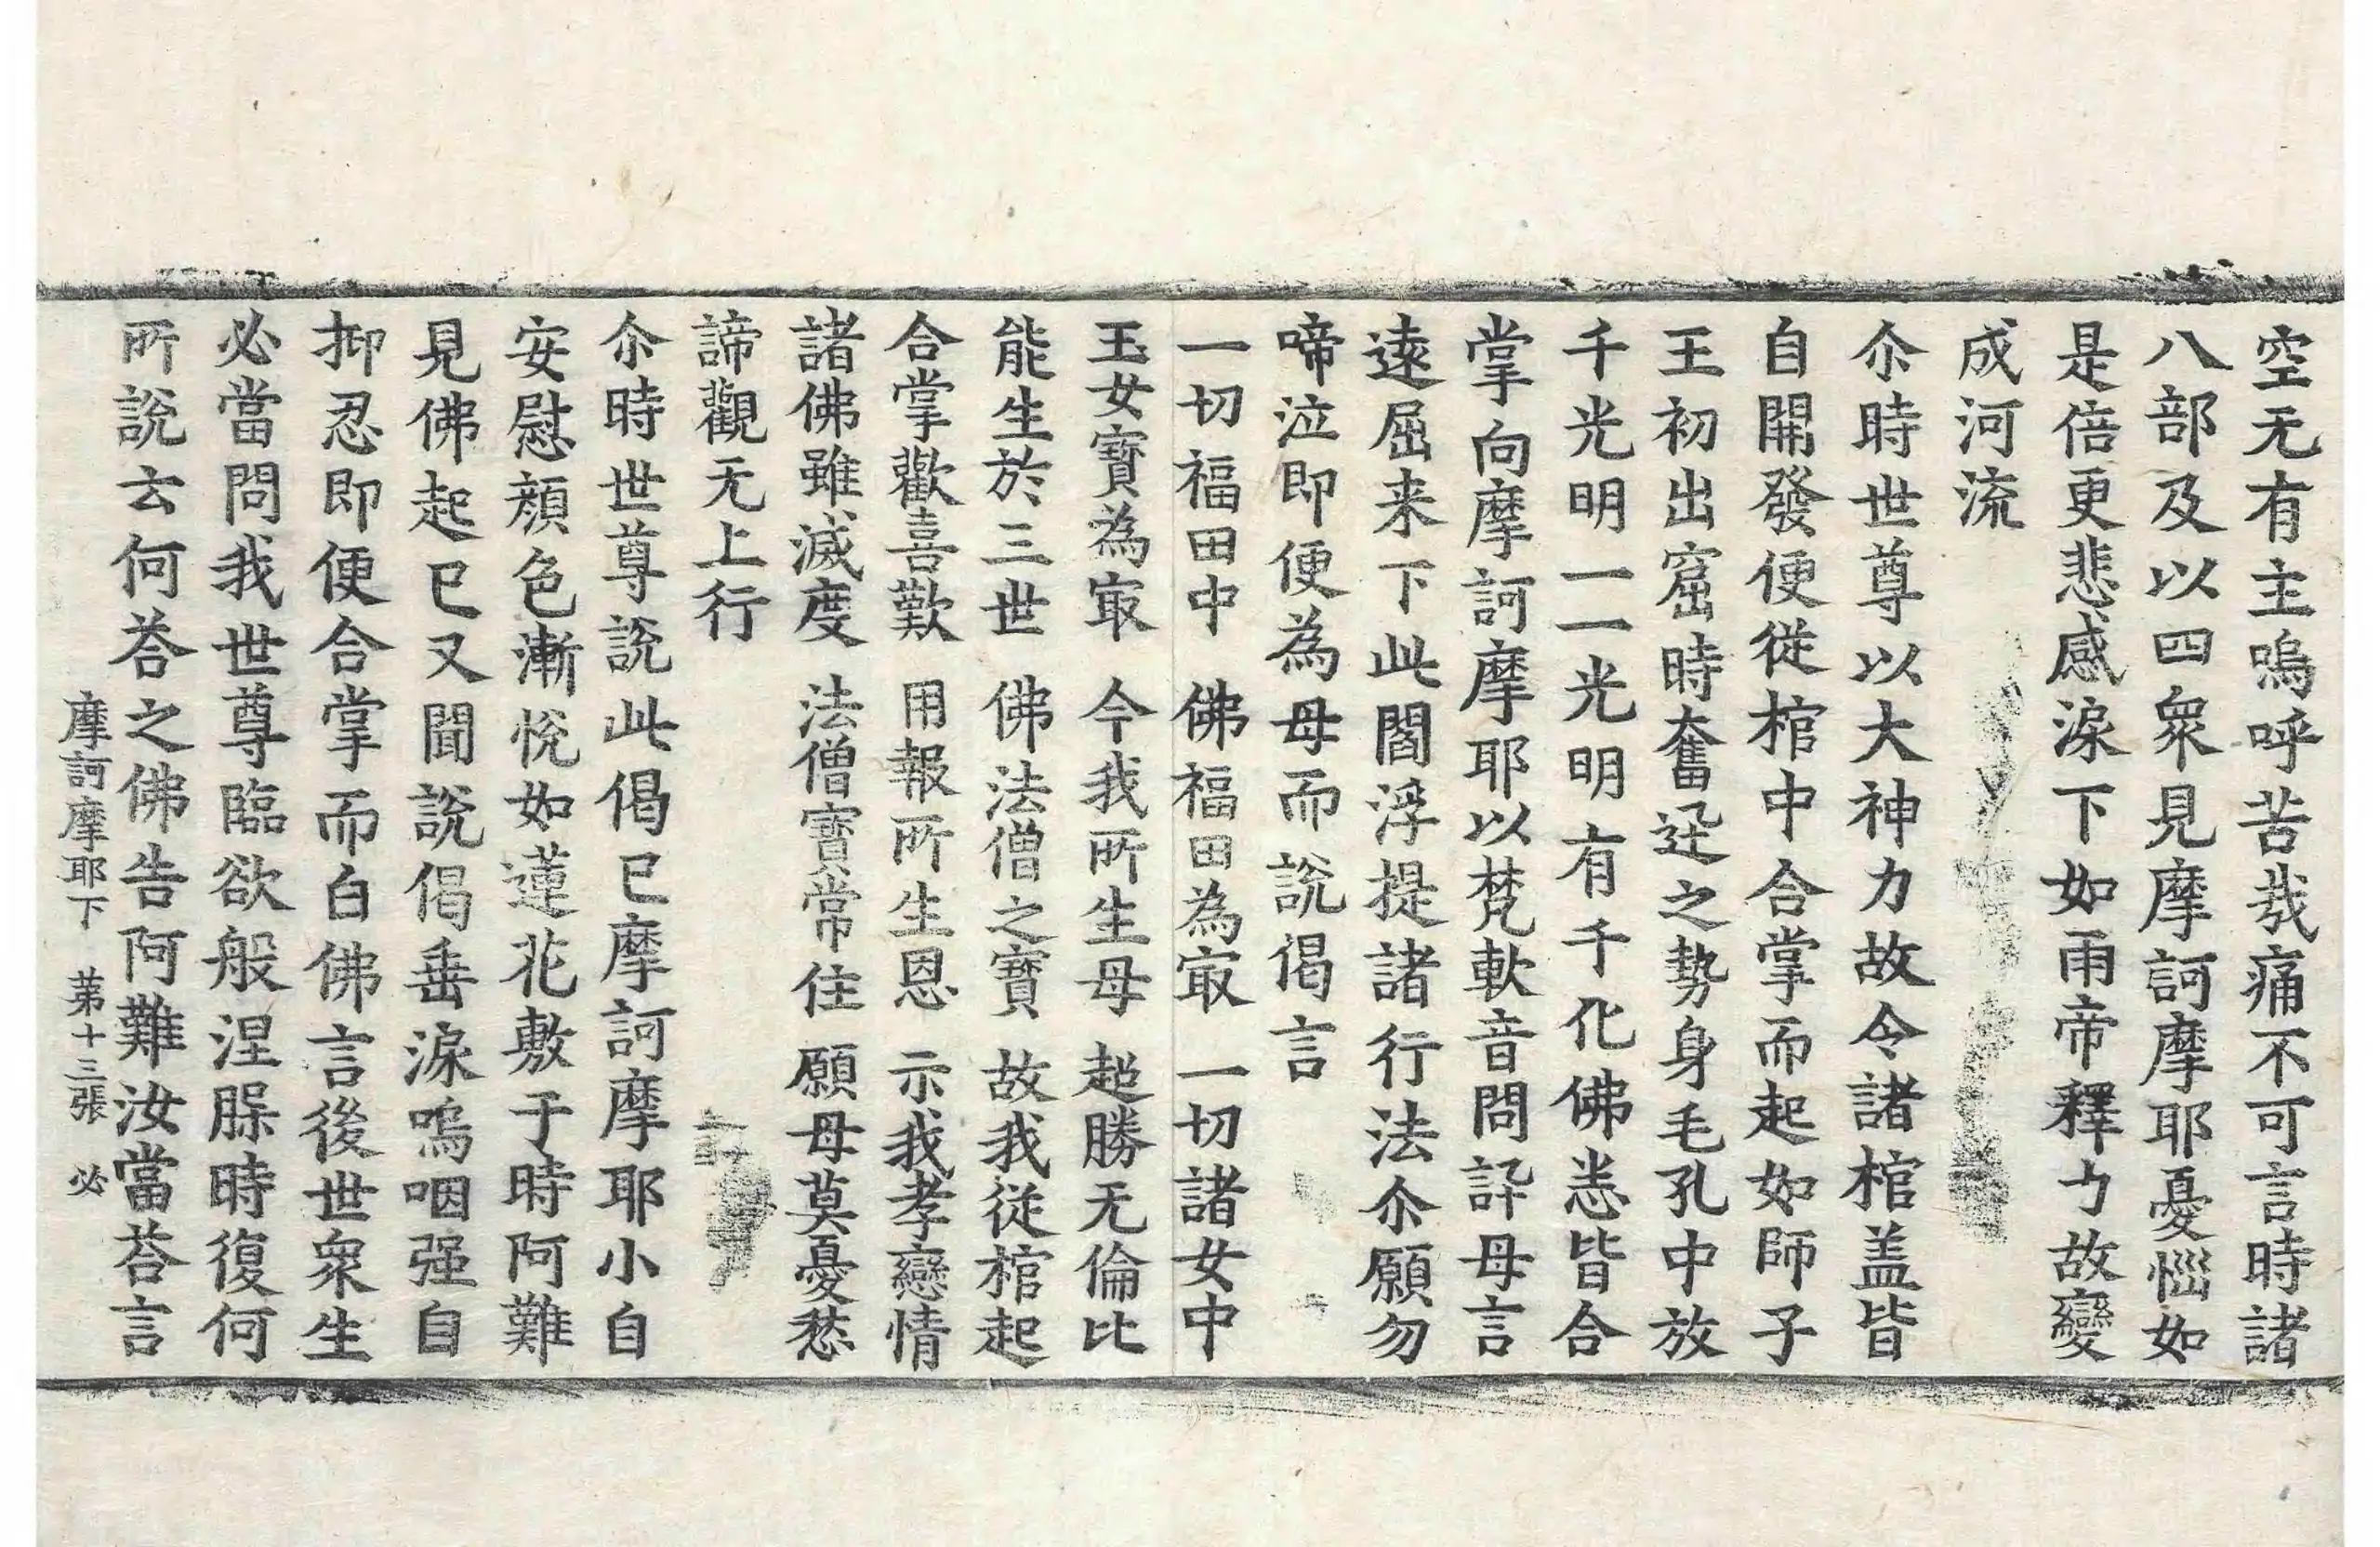 空无有主嗚呼苦哉痛不可言時諸
八部及以四衆見摩訶摩耶憂惱如
是倍更悲感淚下如雨帝釋力故變
成河流
尒時世尊以大神力故令諸棺盖皆
自開發便從棺中合掌而起如師子
王初出窟時奮迅之勢身毛孔中放
千光明一一光明有千化佛悉皆合
掌向摩訶摩耶以梵軟音問訊母言
遠屈来下此閻浮提諸行法尒願勿
啼泣即便為母而說偈言
一切福田中　佛福田為㝡　一切諸女中
玉女寶為㝡　今我所生母　超勝无倫比
能生於三世　佛法僧之寶　故我從棺起
合掌歡喜歎　用報所生恩　示我孝戀情
諸佛雖滅度　法僧寶常住　願母莫憂愁
諦觀无上行
尒時世尊說此偈已摩訶摩耶小自
安慰顔色漸悅如蓮花敷于時阿難
見佛起已又聞說偈垂淚嗚咽强自
抑忍即便合掌而白佛言後世衆生
必當問我世尊臨欲般涅槃時復何
所說云何荅之佛告阿難汝當荅言
摩訶摩耶下　苐十三張　必